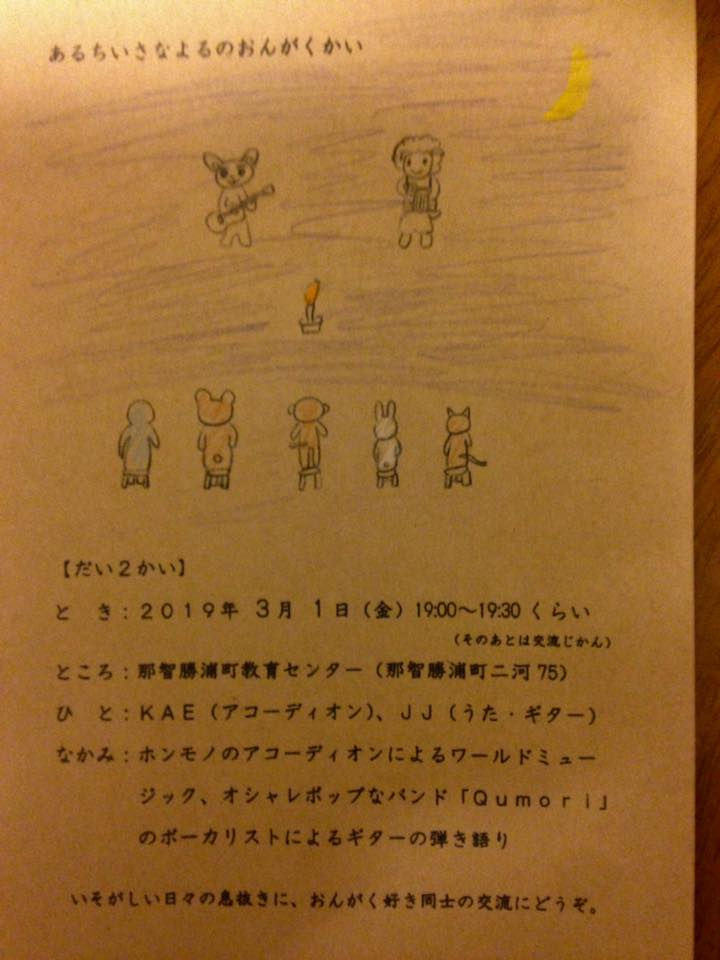 あるちいさなよるのおんがくかい
【だい２かい】
と　き：２０１９年 ３月 １日（金）19:00～19:30 くらい
（そのあとは交流じかん）
ところ：那智勝浦町教育センター（那智勝浦町二河 75）
ひ　と：ＫＡＥ（アコーディオン）、ＪＪ（うた・ギター）
なかみ：ホンモノのアコーディオンによるワールドミュー
ジック、オシャレポップなバンド「Ｑｕｍｏｒｉ」
のボーカリストによるギターの弾き語り
いそがしい日々の息抜きに、おんがく好き同士の交流にどうぞ。